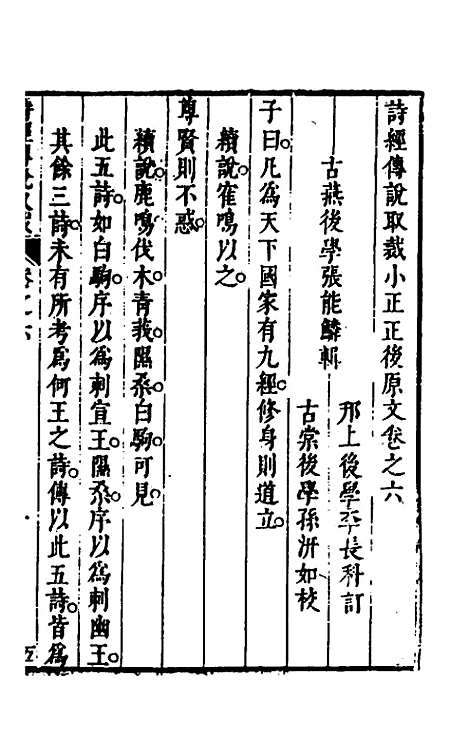 詩經傳說取裁小正正後原文卷之六
邗上後學李長科訂
古燕後學張能鱗輯
古棠後學孫汧如校
子曰凡為天下國家有九經修身則道立
賴說寉鳴以之
尊賢則不惑
賴說鹿鳴伐木青莪隰桑白駒可見
此五詩如白駒序以為刺宣王隰桑序以為刺幽王
其餘三詩未有所考為何王之詩傳以此五詩皆為
詩經傳說取裁 卷之六 五